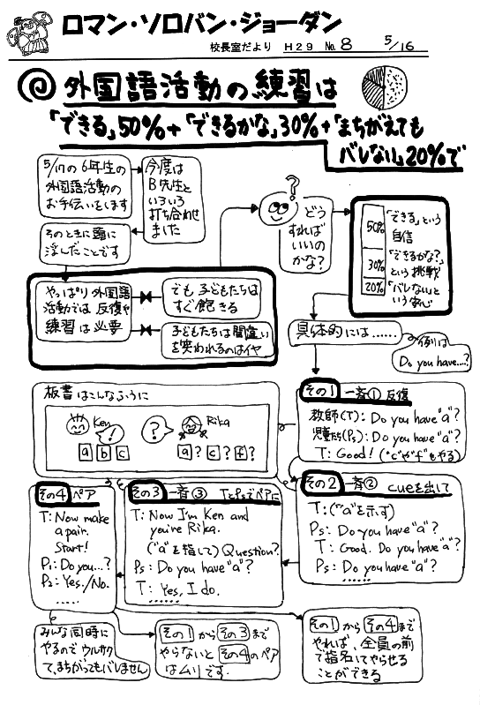 ロマン・ソロバン・ジョーダン
校長室だより H29 No.8 5/16
外国語活動の練習は
「できる」50%+「できるかな」30%+「まちがえても
バレない」20%で
5/17の6年生の
外国語活動の
お手伝いをします
今度は
B先生と
いろいろ
打ち合わせ
ました
そのときに頭に
浮んだことです
?
どう
すれば
いいの
かな?
50%
30%
20%
「できる」という
自信
「できるかな?」
という挑戦
「バレない」と
いう安心
やっぱり外国語
活動では反復や
練習は必要
でも子どもたちは
すぐ飽きる
子どもたちは間違い
を笑われるのはイヤ
具体的には……
例えば
Do you have...?
板書はこんなふうに
Ken
!
?
Rika
a b c
a? c? f?
その1 一斉① 反復
教師(T): Do you have "a"?
児童たち(Ps): Do you have "a"?
T: Good! ("c"や"f"もやる)
その2 一斉② cueを出して
T: ("a"を示す)
Ps: Do you have "a"?
T: Good. Do you have "a"?
Ps: Do you have "a"?
.....
その3 一斉③ TとPsでペアに
T: Now I'm Ken and
you're Rika.
("a"を指して) Question?
Ps: Do you have "a"?
T: Yes, I do.
.....
その4 ペア
T: Now make
a pair.
Start!
P1: Do you...?
P2: Yes./No.
.....
みんな同時に
やるのでウルサク
て、まちがってもバレません
その1からその3まで
やらないとその4のペア
はムリです.
その1からその4まで
やれば、全員の前
で指名してやらせる
ことができる